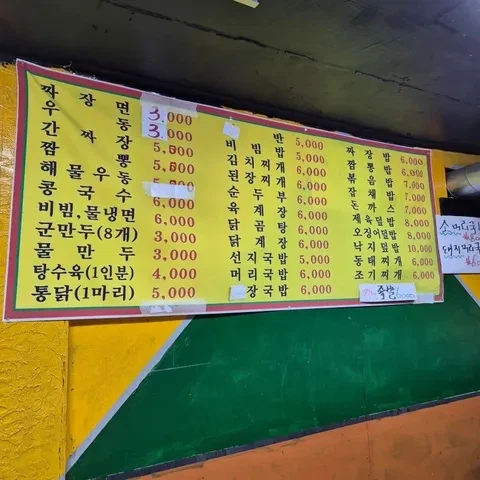 짜장면 3,000
우동 3,000
간짜장 5,500
짬뽕 5,500
해물우동
콩국수 6,000
비빔,물냉면 6,000
군만두(8개) 3,000
물만두 3,000
탕수육(1인분) 4,000
통닭(1마리) 5,000
반 5,000
비빔밥 5,000
김치찌개 5,000
된장찌개 5,000
순두부 6,000
육개장 6,000
닭곰탕 6,000
닭계장 6,000
선지국밥 5,000
머리국밥 6,000
장국밥 6,000
짜장밥 6,000
짬뽕밥 6,000
볶음밥 7,000
잡채밥 7,000
돈까스 7,000
제육덮밥 8,000
오징어덮밥 8,000
낙지덮밥 10,000
동태찌개 6,000
조기찌개 6,000
족발